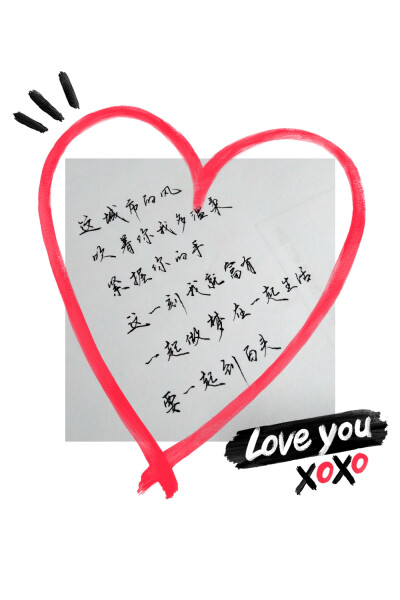 这城市的风
吹着你我多温柔
紧握你的手
这一刻我就富有
一起做梦在一起生活
要一起到白头
Love you
XOXO